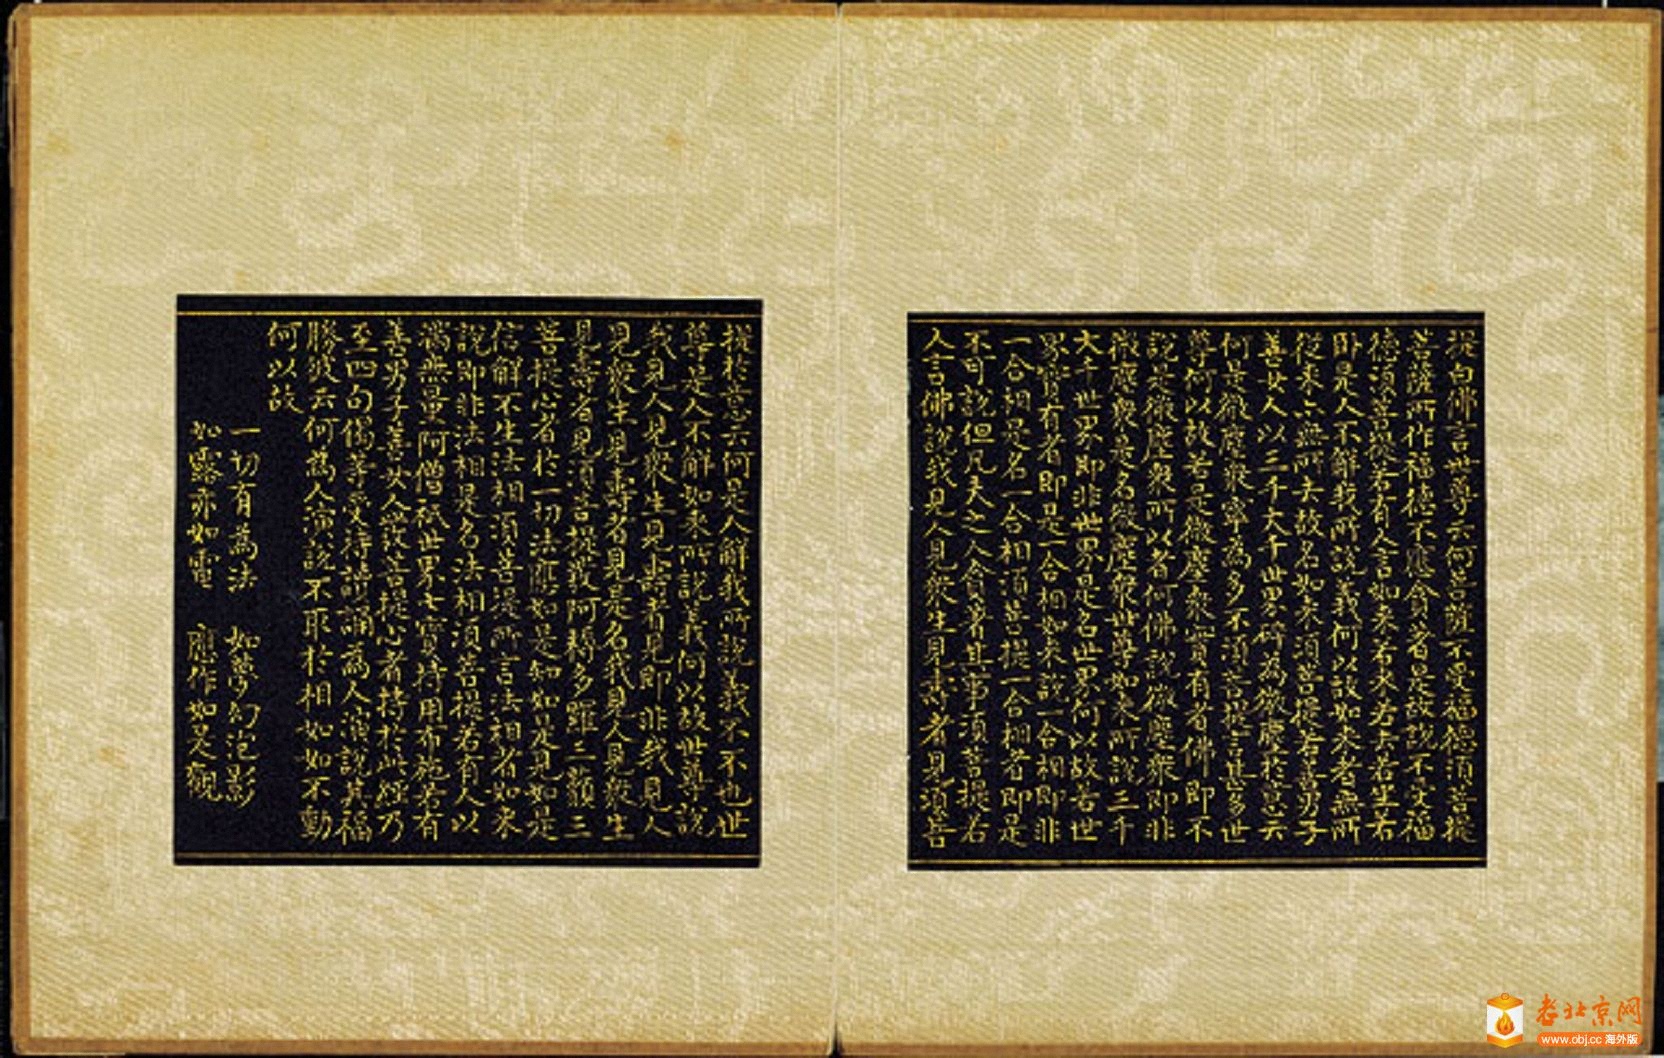 提白佛言世尊云何菩薩不受福德須菩提
菩薩所作福德不應貪著是故說不受福
德須菩提若有人言如來若來若去若坐若
臥是人不解我所說義何以故如來者無所
從來亦無所去故名如來須菩提若善男子
善女人以三千大千世界碎為微塵於意云
何是微塵衆寧為多不須菩提言甚多世
尊何以故若是微塵衆實有者佛即不
說是微塵衆所以者何佛說微塵衆即非
微塵衆是名微塵衆世尊如來所說三千
大千世界即非世界是名世界何以故若世
界實有者即是一合相如來說一合相即非
一合相是名一合相須菩提一合相者即是
不可說但凡夫之人貪著其事須菩提若
人言佛說我見人見衆生見壽者見須菩
提於意云何是人解我所說義不不也世
尊是人不解如來所說義何以故世尊說
我見人見衆生見壽者見即非我見人
見衆生見壽者見是名我見人見衆生
見壽者見須菩提發阿耨多羅三藐三
菩提心者於一切法應如是知如是見如是
信解不生法相須菩提所言法相者如來
說即非法相是名法相須菩提若有人以
滿無量阿僧祇世界七寶持用布施若有
善男子善女人發菩提心者持於此經乃
至四句偈等受持讀誦為人演說其福
勝彼云何為人演說不取於相如如不動
何以故
一切有為法 如夢幻泡影
如露亦如電 應作如是觀
老北京网
www.obj.cc 海外版